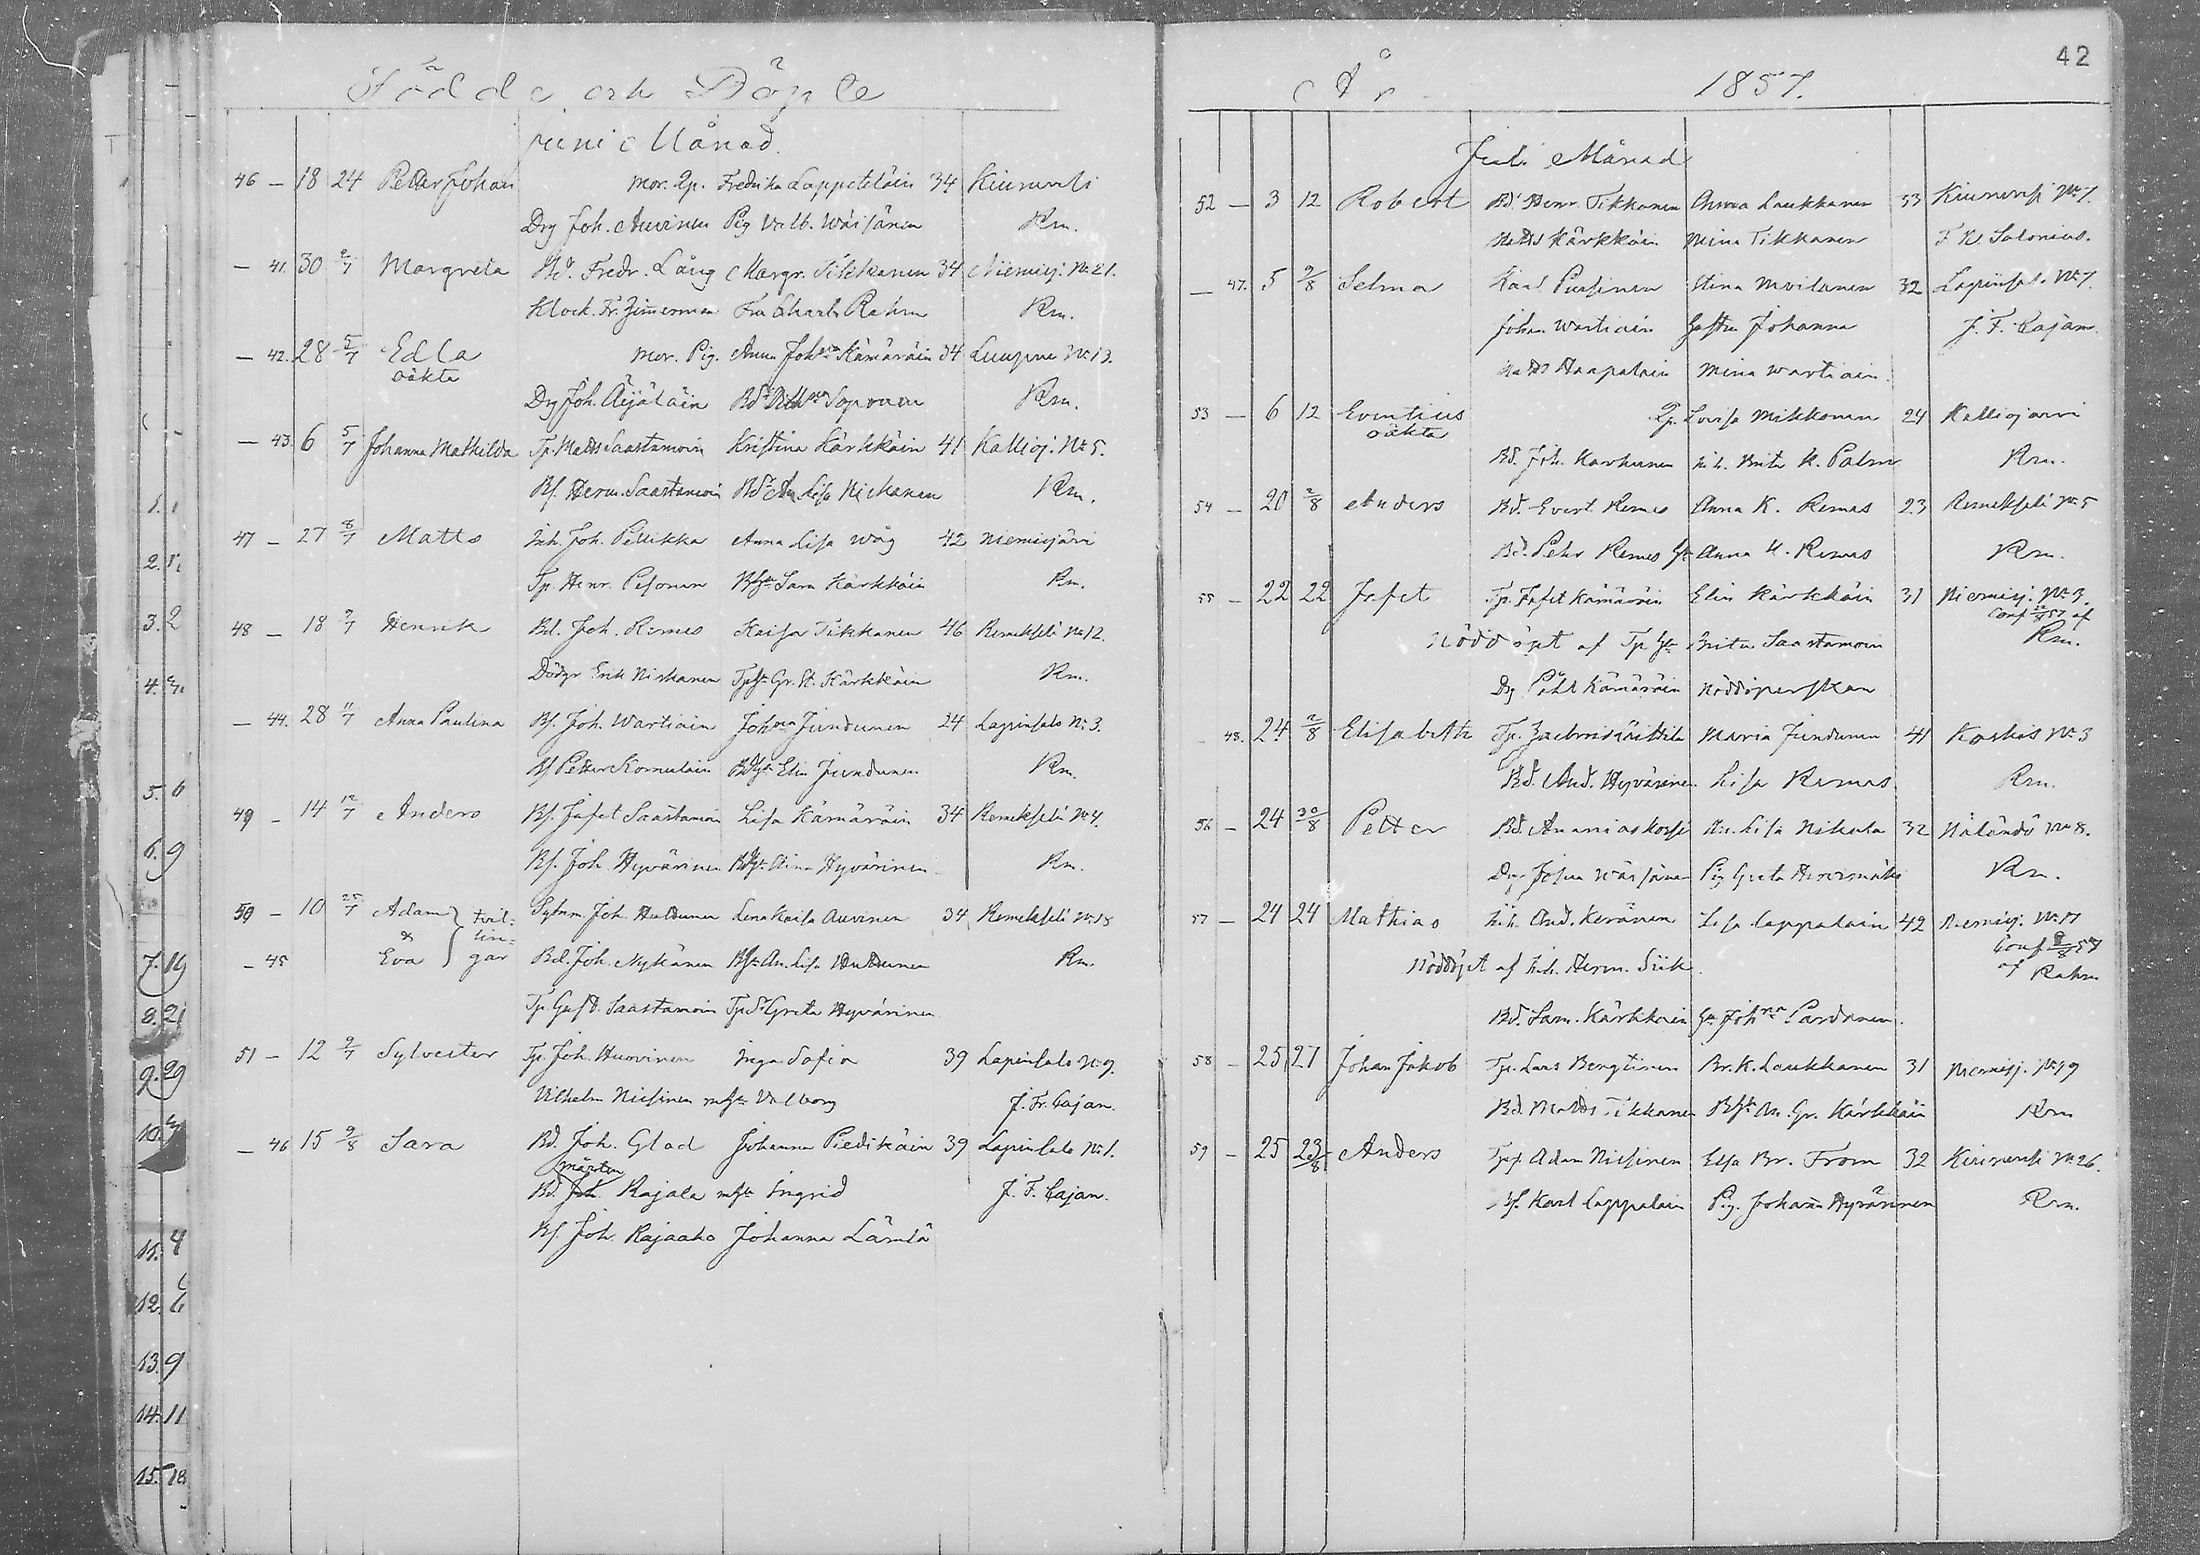 Födde och Döpte
Juni Månad
46 — 18 24 Petter Johan mor. Qp. Fredrika Lappeteläin 34 Kiuruvesi
Drg Joh. Auvinen Pig Valb. Wäisänen Rm.
— 41. 30 2/7 Margreta Bd. Fredr. Lång Margr. Tikkanen 34 Niemisj. No 21.
Klock. Fr. Zimmerman Fru Charl. Rahm Rm.
— 42. 28 5/7 Edla mor. Pig. Anna Johna Kämäräin 34 Luupve No 13.
oäkta
Drg Joh. Äijäläin Bd Sopanen Rm.
— 43. 6 5/7 Johanna Mathilda Tp. Matts Saastamoin Kristina Kärkkäin 41 Kallioj. No 5.
Bf. Herm. Saastamoin An. Lisa Niskanen Rm.
47 — 27 8/7 Matts Inh. Joh. Pellikka Anna Lisa Wåg 42 Niemisjäri
Tp. Henr. Pesonen Sara Kärkkäin Rm.
48 — 18 9/7 Henrik Bd. Joh. Remes Kaisa Tikkanen 46 Remeksela No 12.
Erik Niskanen Gr. St. Kärkkäin Rm.
— 44. 28 11/7 Anna Paulina Bf. Joh. Wartiain Johna Jundunen 24 Lapinsalo No 3.
Bf Petter Komulain Elin Jundunen Rm.
49 — 14 12/7 Anders Bf. Jafet Saastamoin Lisa Kämäräin 34 Remekselä No 4.
Bf. Joh. Hyvärinen Stina Hyvärinen Rm.
50 — 10 25/7 Adam tvil- Joh. Huttunen Lena Kaisa Auvinen 34 Remekselä No 18
& lin-
— 45 Eva gar Bd. Joh. Nykänen An. Lisa Huttunen Rm.
Tp. Gust. Saastamoin Greta Hyvärinen
51 — 12 9/7 Sylvester Tp. Joh. Huovinen Inga Sofia 39 Lapinsalo No 9.
Vilhelm Nissinen Valborg J. Fr. Cajan.
— 46 15 9/8 Sara Bd. Joh. Glad Johanna Piedikäin 39 Lapinsalo No 1.
Mårten
Bd. Joh. Rajala Ingrid J. F. Cajan.
Bf. Joh. Rajaaho Johanna Lämsä
42
År 1857.
Juli Månad
52 — 3 12 Robert Bd. Henr. Tikkanen Anna Laukkanen 33 Kiuruvesi No 7.
Matts Kärkkäin Mina Tikkanen F. W. Salonius.
— 47. 5 9/8 Selma Karl Pursinen Stina Moilanen 32 Lapinsalo No 7.
Johan Wartiain Johanna J. F. Cajan.
Matts Haapalain Mina Wartiain.
53 — 6 12 Eventius Qp. Lovisa Mikkonen 24 Kalliojärvi
oäkta
Bd. Joh. Karhunen Brita K. Palm Rm.
54 — 20 2/8 Anders Bd. Evert Remes Anna K. Remes 23 Remekselä No 5
Bd. Pehr Remes Anna K. Remes Rm.
55 — 22 22 Jafet Tp. Jafet Kämäräin Elin Kärkkäin 31 Niemisj. No 3.
Nöddöpt af Tp Brita Saastamoin Rm.
Drg Pehr Kämäräin nöddöperskan
48. 24 2/8 Elisabeth Tp. Maria Jundunen 41 Koskis No 3
Bd. And. Hyvärinen Lisa Remes Rm.
56 — 24 30/8 Petter Bd. Ananias An. Lisa Nikula 32 Näländö No 8.
Drg Josua Wäisänen Pig Greta Rm.
57 — 24 24 Mathias Inh. And. Keränen Lisa Lappalain 42 Niemisj. No 17
Nöddöpt af Inh. Herm. Siik Conf 9/8 57
af Rahm
Bd. Sam. Kärkkäin Johna Pardanen.
58 — 25 27 Johan Jakob Tp. Lars Bengtinen Br. K. Laukkanen 31 Niemisj. No 19
Bd. Matts Tikkanen An. Gr. Kärkkäin Rm
59 — 25 23/8 Anders Adam Nissinen Elsa Br. From 32 Kiuruvesi No 26.
Bf. Karl Lappalain Pig. Johanna Hyvärinen Rm.